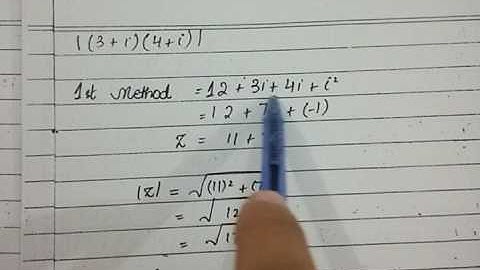 |(3+i)(4+i)|
1st Method = 12 + 3i + 4i + i²
= 12 + 7 + (-1)
Z = 11 +
|Z| = √(11)² + (
= √ 12
= √ 17